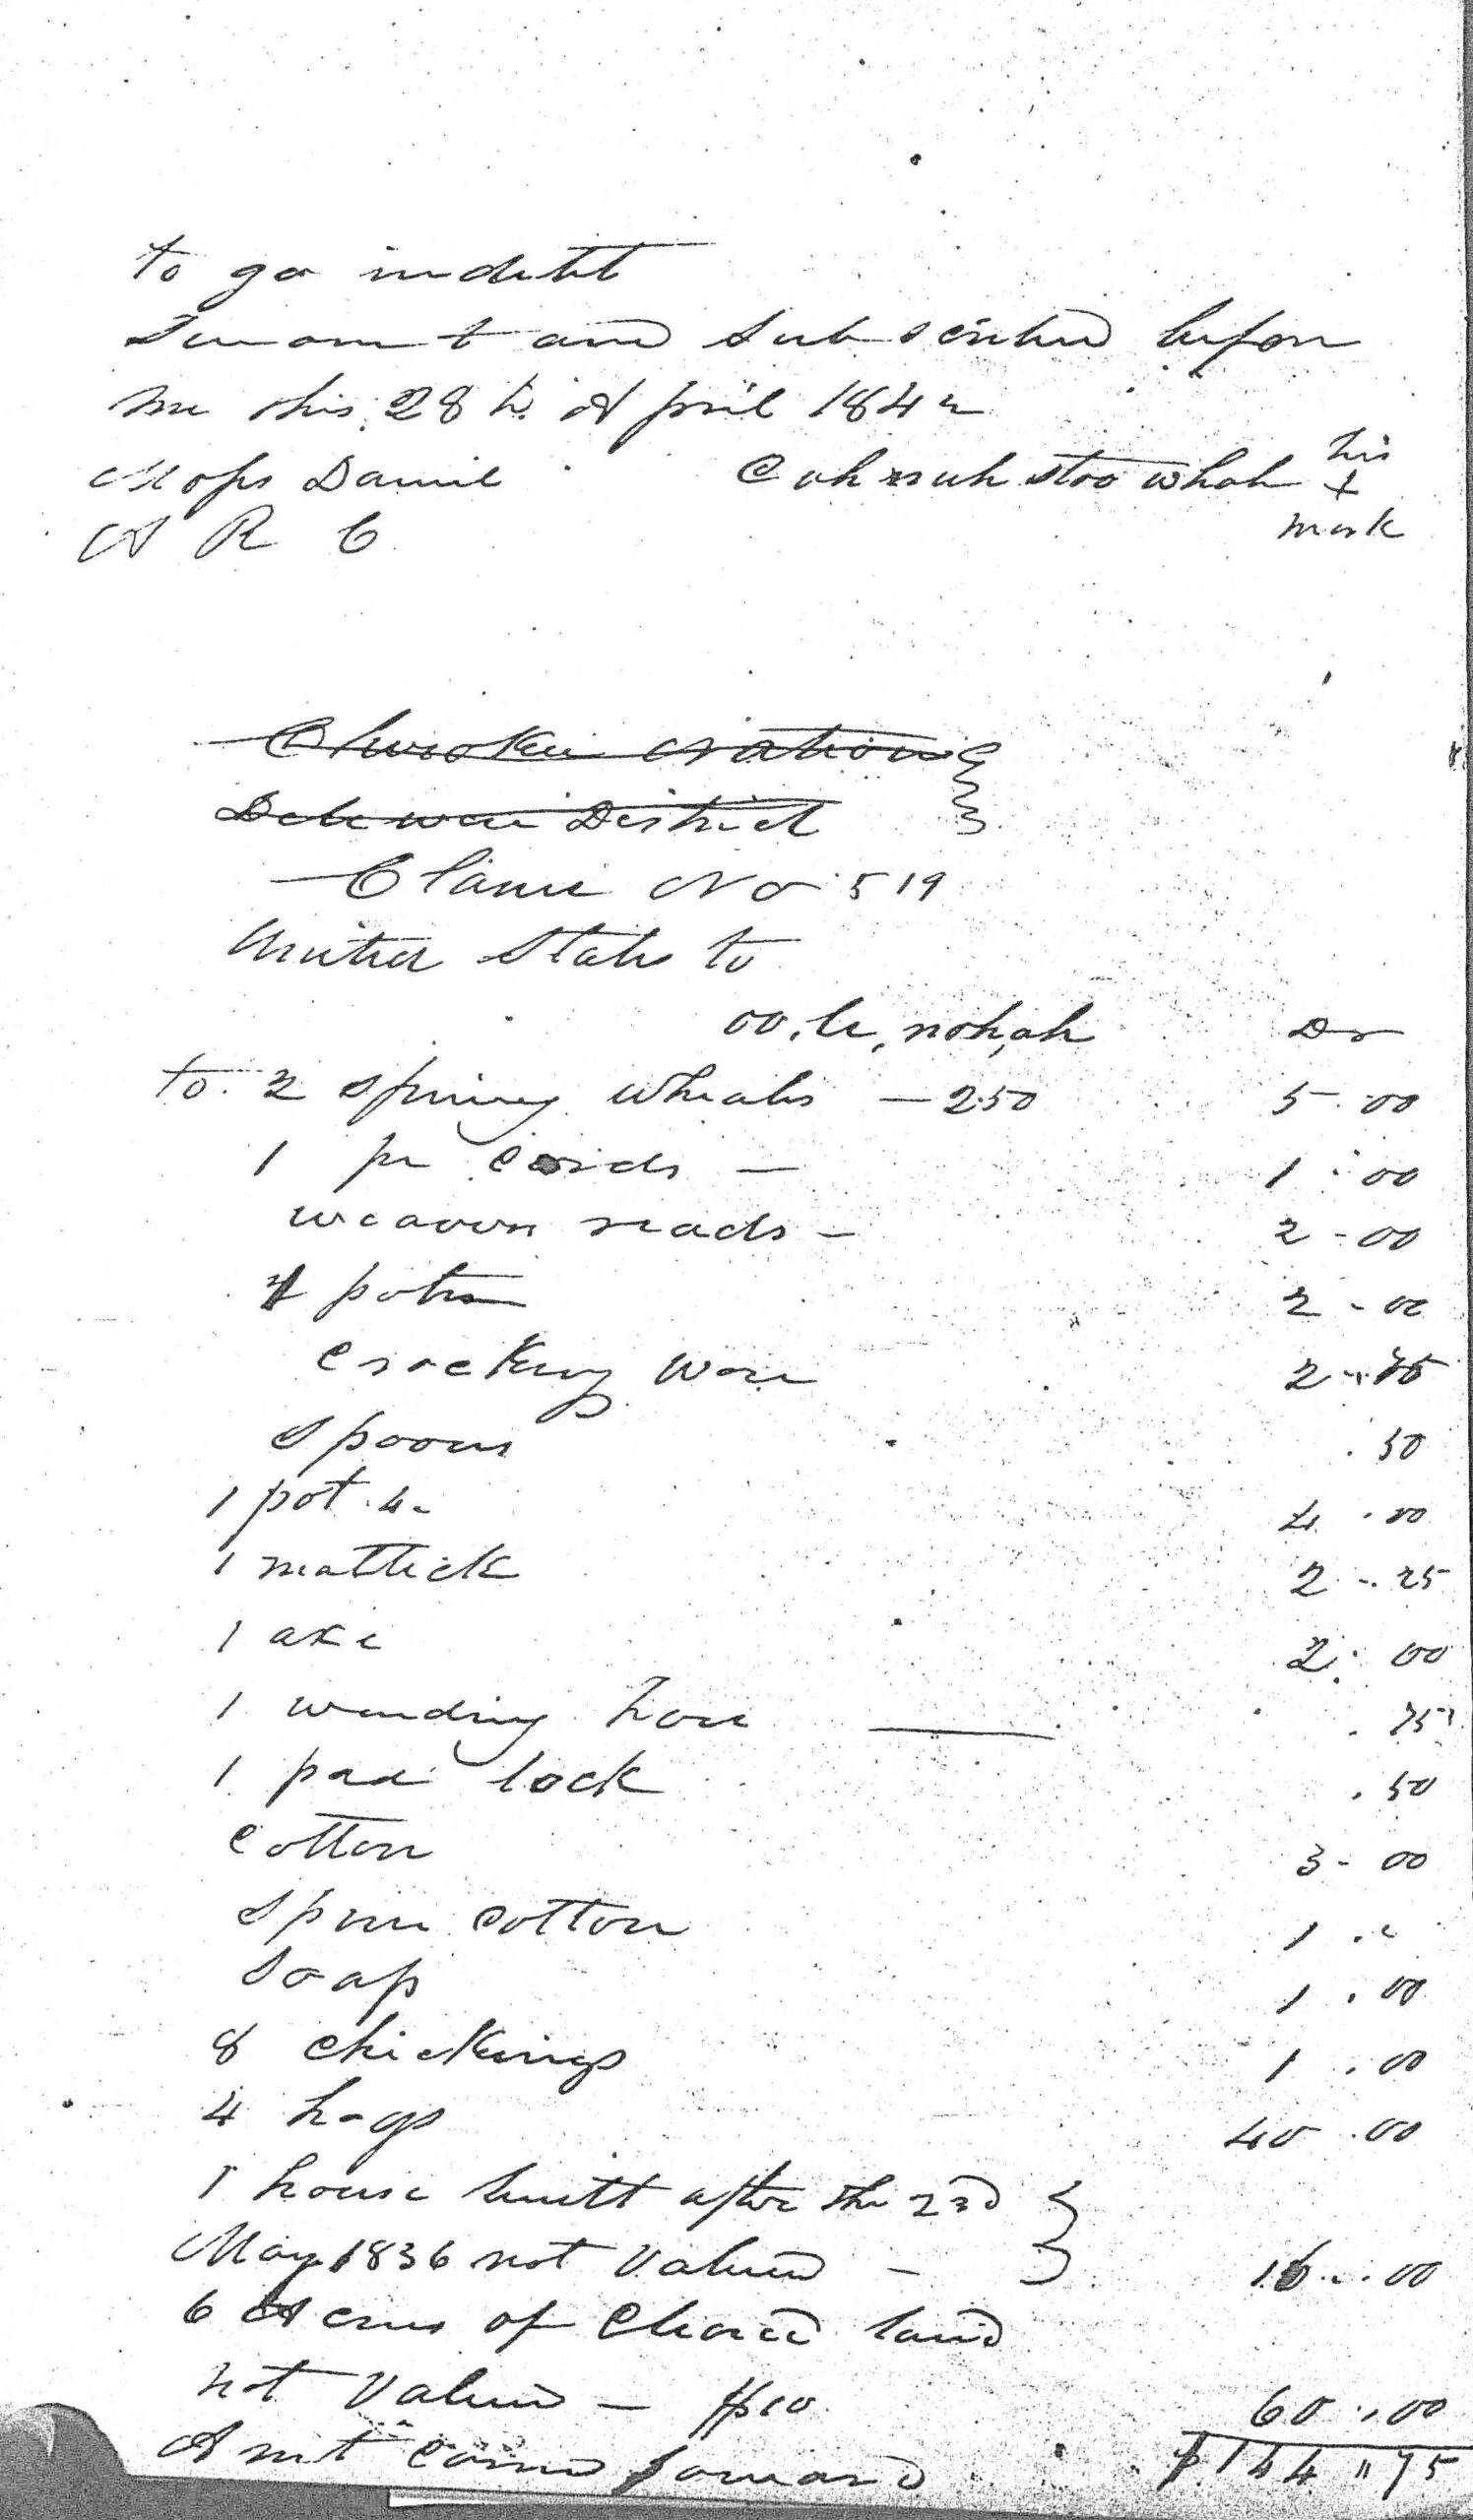 to go in debt
Sworn t and Subscribed before
me this 28 th April 1842
his
Moses Daniel Cah nuh stoo whah +
mark
A R C
Cherokee Nation
Delewar District
Claime No 519
United States to
oo, le, noh, ah Dr
to 2 spining wheals — 2.50 5.00
1 pr Cards — 1.00
weavers reads — 2-00
4 pots 2-00
Crockery Ware 2-.75
Spoons .50
1 pot 4- 4.00
1 mattick 2-.25
1 axe 2.00
1 weeding hoe .75
1 pad lock .50
Cotton 3-00
Spun Cotton 1 ..
Soap 1.00
8 chickings 1.00
4 hogs 40.00
1 house built after the 23d
May 1836 not Valued — 16..00
6 Acres of Cleared land
not Valued — $10 60.,00
Amt Carried forward $144"75